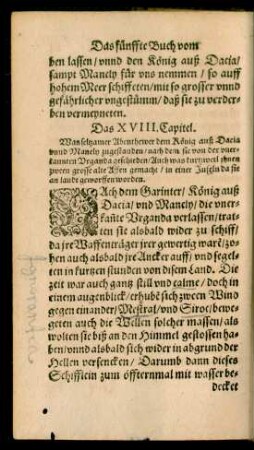 Das fünffte Buch vom
ben lassen / vnnd den König auß Dacia /
sampt Manely für vns nemmen / so auff
hohem Meer schiffeten / mit so grosser vnnd
gefährlicher vngestümm / daß sie zu verder-
ben vermeyneten.
Das XVIII. Capitel.
Wanselhamer Abentheuwer dem König auß Dacia
vnnd Manely zugestanden / nach dem sie von der vner-
kannten Vrganda gescheiden / Auch was kurtzweil jhnen
zween grosse alte Affen gemacht / in einer Jnseln da sie
an landt geworffen worden.
NAch dem Garinter / König auß
Dacia / vnd Manely / die vner-
kañte Vrganda verlassen / trat-
ten sie alsbald wider zu schiff /
da jre Waffenträger jrer gewertig warẽ / zo-
hen auch alsbald jre Ancker auff / vnd segel-
ten in kurtzen stunden von disem Land. Die
zeit war auch gantz still vnd calme / doch in
einem augenblick / erhubẽ sich zween Wind
gegen einander / Mestral / vnd Siroc / bewe-
geten auch die Wellen solcher massen / als
wolten sie biß an den Himmel gestossen ha-
ben / vnnd alsbald sich wider in abgrund der
Hellen versencken / Darumb dann dieses
Schifflein zum öffternmal mit wasser be-
decket